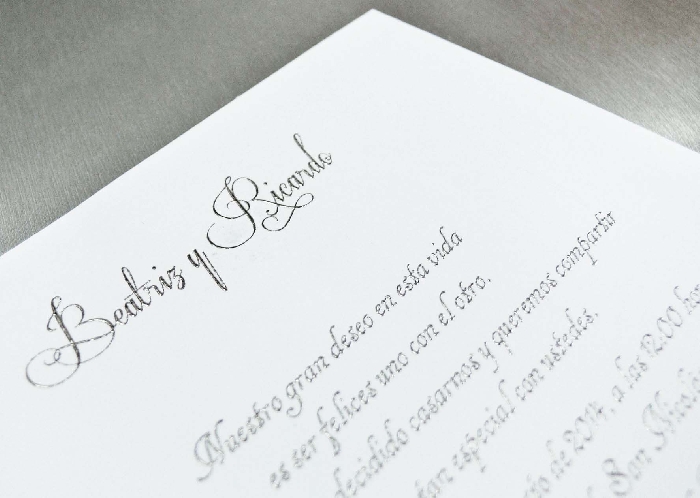 Beatriz y Ricardo
Nuestro gran deseo en esta vida
es ser felices uno con el otro,
decidido casarnos y queremos compartir
tan especial con ustedes.
de 2014, a las 12:00
San